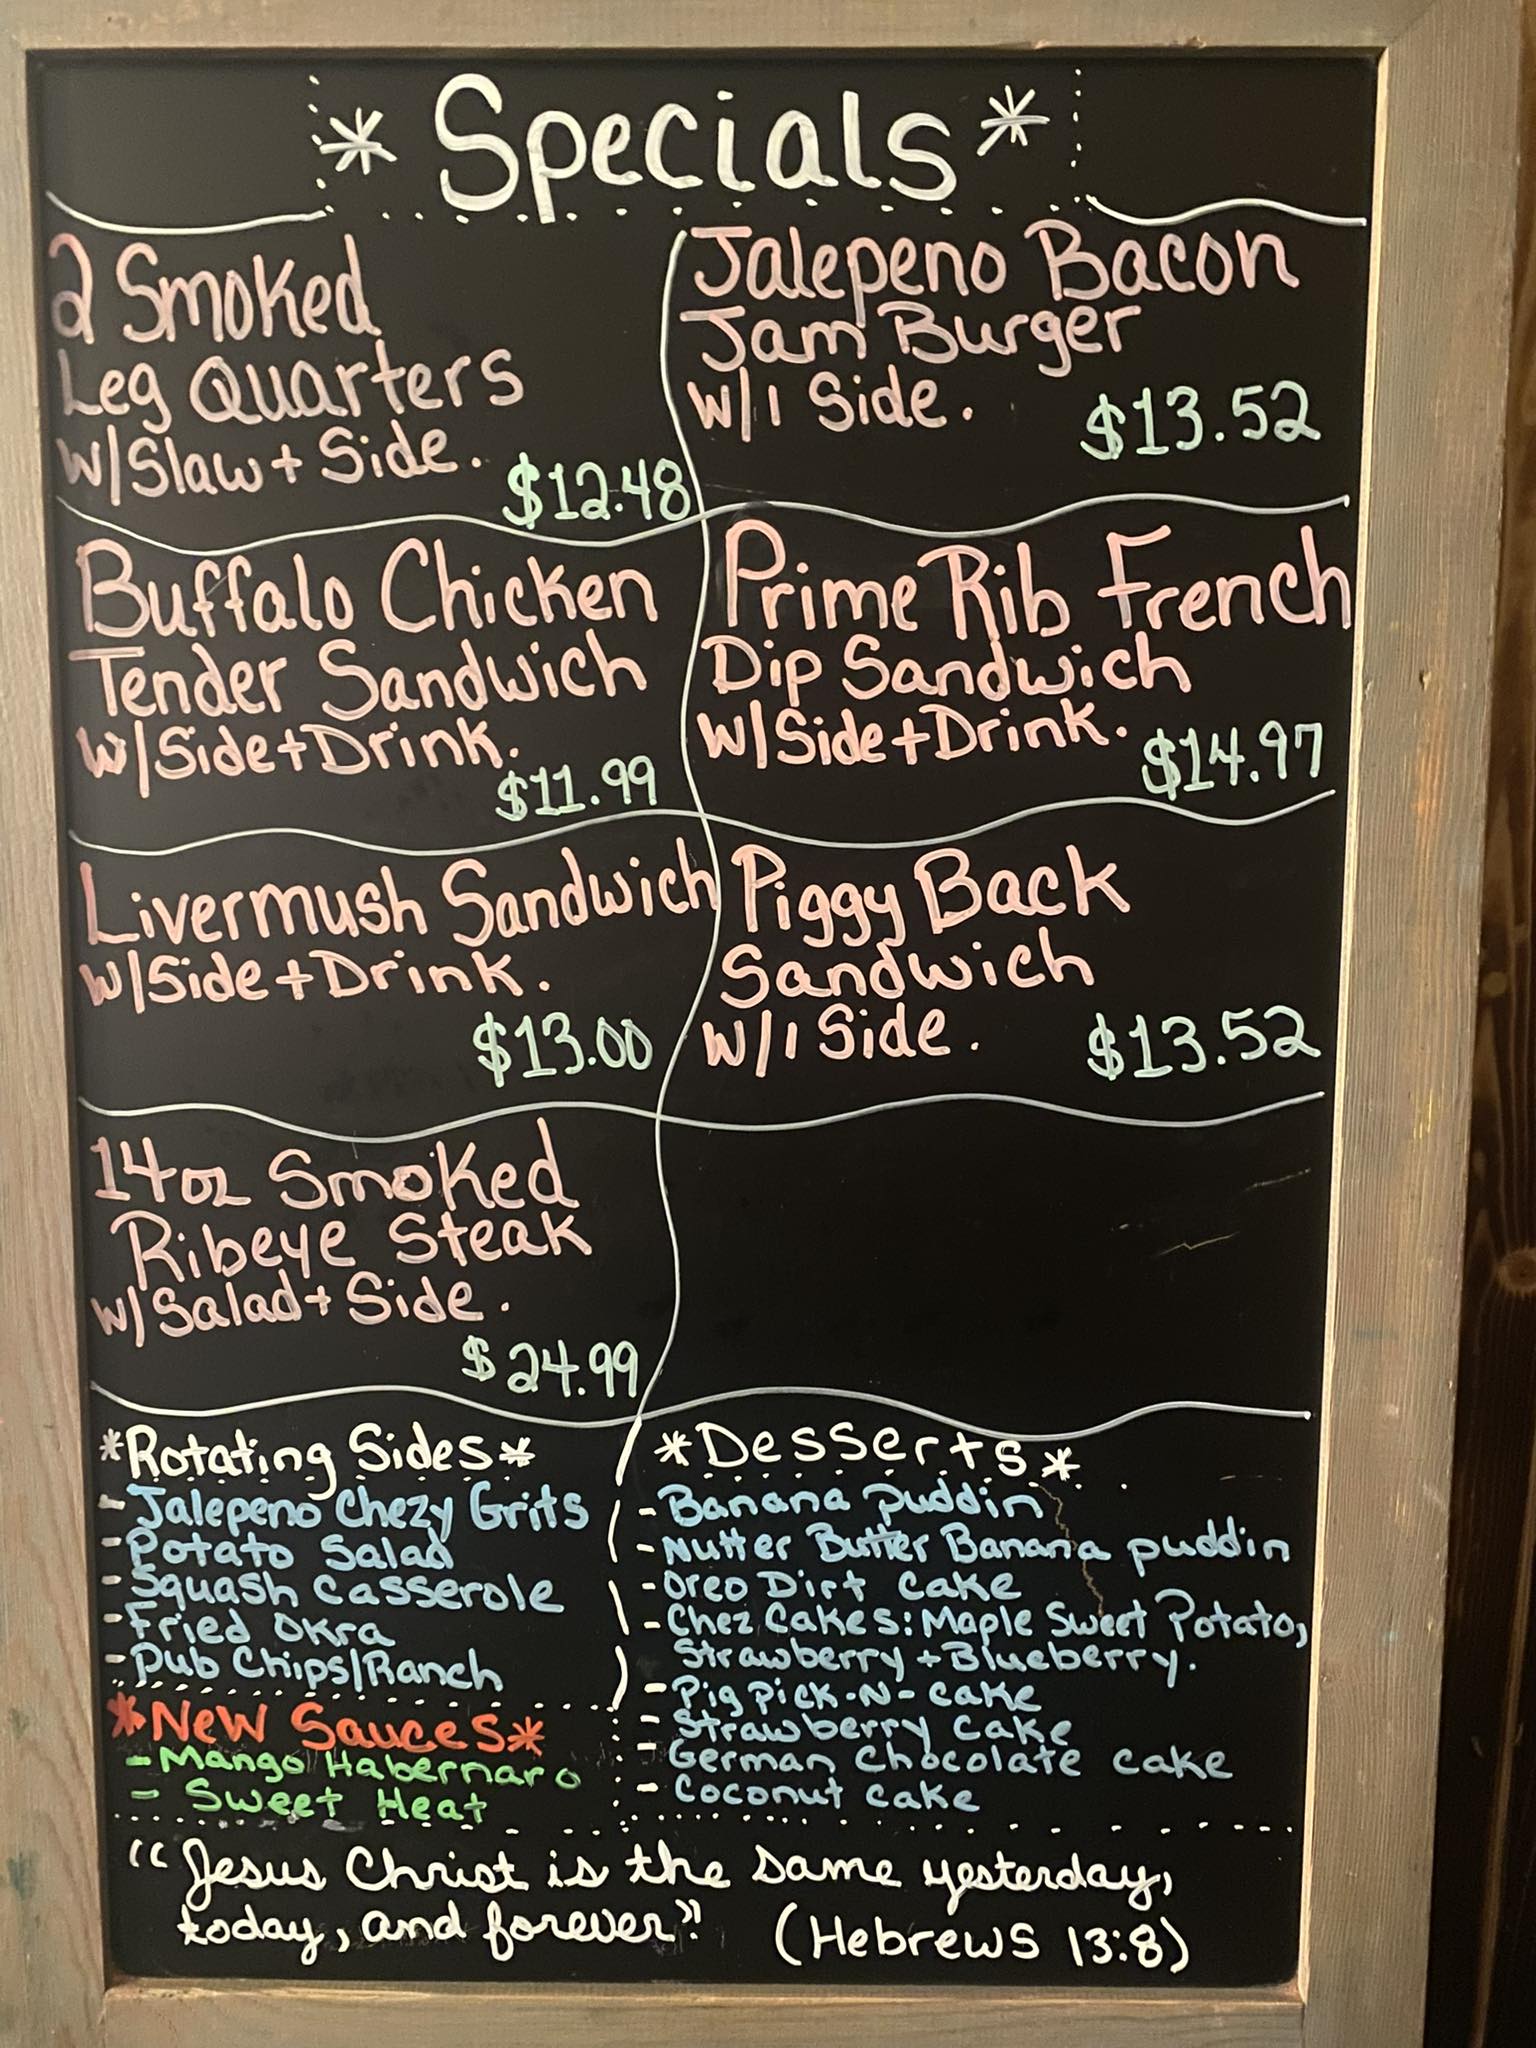 * Specials *
2 Smoked
Leg Quarters
w/Slaw + Side.
$12.48
Jalepeno Bacon
Jam Burger
w/1 Side.
$13.52
Buffalo Chicken
Tender Sandwich
w/Side+Drink.
$11.99
Prime Rib French
Dip Sandwich
w/Side+Drink.
$14.97
Livermush Sandwich
w/Side+Drink.
$13.00
Piggy Back
Sandwich
w/1 Side.
$13.52
14oz Smoked
Ribeye Steak
w/Salad+Side.
$24.99
*Rotating Sides*
- Jalepeno Chezy Grits
- Potato Salad
- Squash Casserole
- Fried Okra
- Pub Chips/Ranch
*New Sauces*
- Mango Habernaro
- Sweet Heat
*Desserts*
- Banana puddin
- Nutter Butter Banana puddin
- Oreo Dirt cake
- Chez Cakes: Maple Sweet Potato,
Strawberry + Blueberry.
- Pig pick-N-cake
- Strawberry cake
- German Chocolate cake
- Coconut cake
"Jesus Christ is the same yesterday,
today, and forever." (Hebrews 13:8)